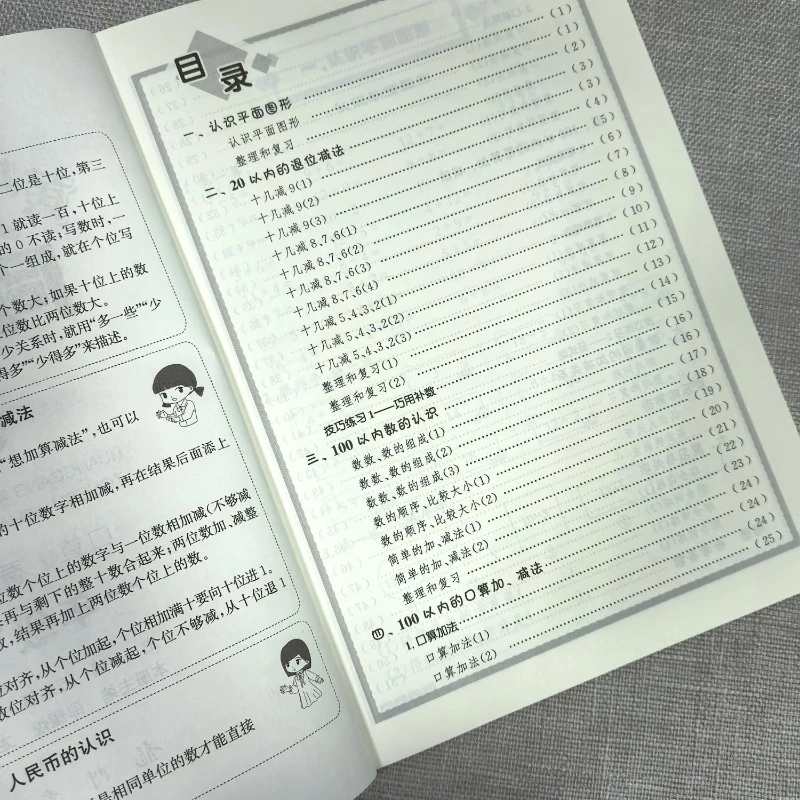 二位是十位,第三
1就读一百,十位上
的0不读;写数时,一
个一组成,就在个位写
个数大;如果十位上的数
位数比两位数大。
少关系时,就用“多一些”“少
得多”“少得多”来描述。
减法
“想加算减法”,也可以
的十位数字相加减,再在结果后面添上
位数个位上的数字与一位数相加减(不够减
再与剩下的整十数合起来;两位数加、减整
数,结果再加上两位数个位上的数。
位对齐,从个位加起,个位相加满十要向十位进1。
数位对齐,从个位减起,个位不够减,从十位退1
人民币的认识
是相同单位的数才能直接
目录
一、认识平面图形 (1)
认识平面图形 (1)
整理和复习 (2)
二、20以内的退位减法 (3)
十几减9(1) (3)
十几减9(2) (4)
十几减9(3) (5)
十几减8、7、6(1) (6)
十几减8、7、6(2) (7)
十几减8、7、6(3) (8)
十几减8、7、6(4) (9)
十几减5、4、3、2(1) (10)
十几减5、4、3、2(2) (11)
十几减5、4、3、2(3) (12)
整理和复习(1) (13)
整理和复习(2) (14)
技巧练习1——巧用补数 (15)
三、100以内数的认识 (16)
数数、数的组成(1) (16)
数数、数的组成(2) (17)
数数、数的组成(3) (18)
数的顺序、比较大小(1) (19)
数的顺序、比较大小(2) (20)
简单的加、减法(1) (21)
简单的加、减法(2) (22)
整理和复习 (23)
四、100以内的口算加、减法 (24)
1.口算加法 (24)
口算加法(1) (24)
口算加法(2) (25)